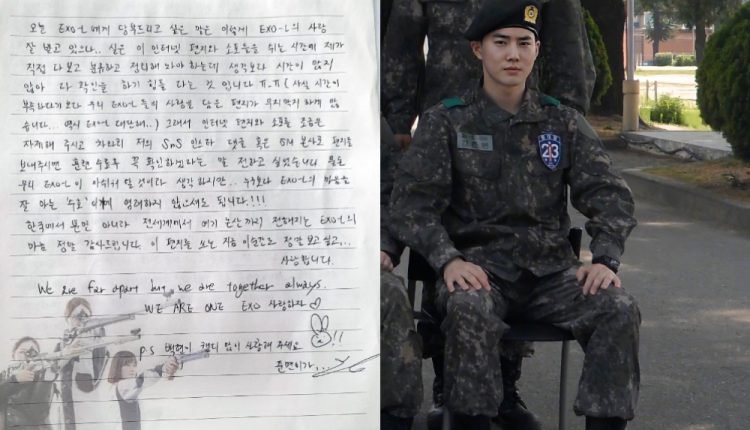 오늘 EXO-L 에게 당부드리고 싶은 말은 이렇게 EXO-L의 사랑
잘 받고 있으나.. 실은 이 인터넷 편지와 소포들을 쉬는 시간에 제가
직접 다 보고 분류하고 정리해 와야 하는데 생각보다 시간이 많지
않아 다 확인을 하기 힘들 다는 것 입니다 ㅠ.ㅠ ( 사실 시간이
부족하다기보다 우리 EXO-L 들의 사랑을 담은 편지가 무지막지 하게 많
습니다... 역시 EXO-L 대단해..) 그래서 인터넷 편지와 소포 조금은
자제해 주시고 차라리 저의 SNS 인스타 댓글 혹은 SM 본사로 편지를
보내주시면 훈련 수료후 꼭 확인하겠다는 말 전하고 싶었습니다 물론
우리 EXO-L이 아쉬워 할 것이라 생각하지만.. 누구보다 EXO-L의 마음을
잘 아는 '수호' 이기에 염려하지 않으셔도 됩니다!!!
한국에서 뿐만 아니라 전세계에서 여기 논산까지 전해지는 EXO-L의
마음 정말 감사드립니다. 이 편지를 쓰는 지금 이순간도 정말 보고싶고...
사랑합니다.
We are far apart but we are together always.
WE ARE ONE EXO 사랑하자
!!
p.s 백현이 캔디 많이 사랑해 주세요
준면이가...
23